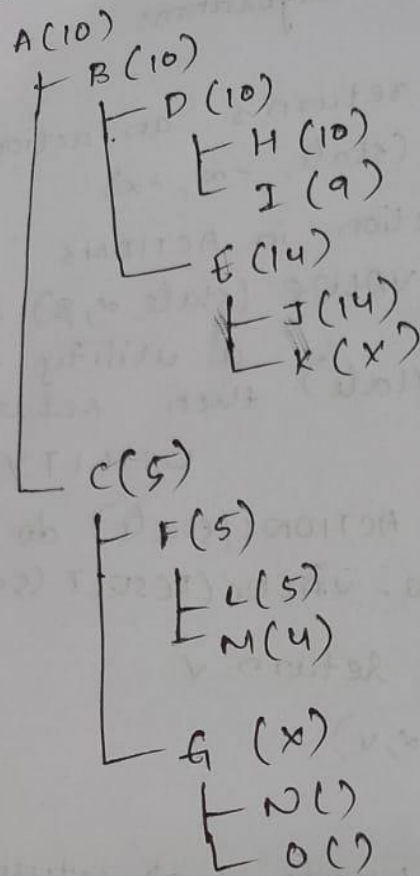 A(10)
B(10)
D(10)
H(10)
I(9)
E(14)
J(14)
K(X)
C(5)
F(5)
L(5)
M(4)
G (X)
N()
O()